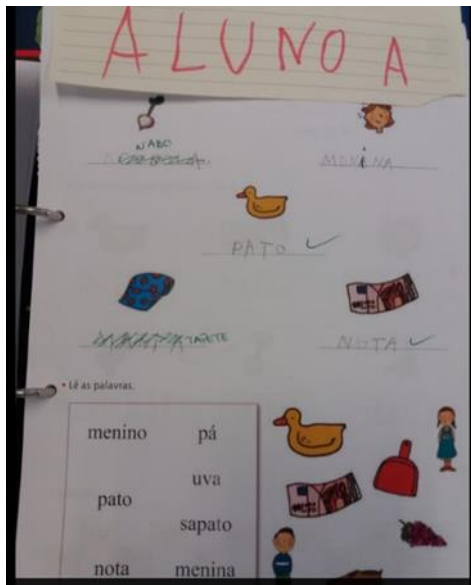 ALUNO A
NABO
MENINA
PATO
TAPETE
NOTA
• Lê as palavras.
menino pá
uva
pato
sapato
nota menina